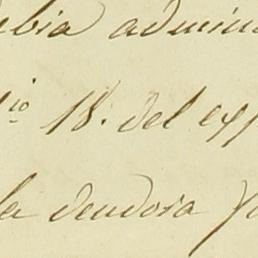 ebia admini
io 18. del exp
la deudora y